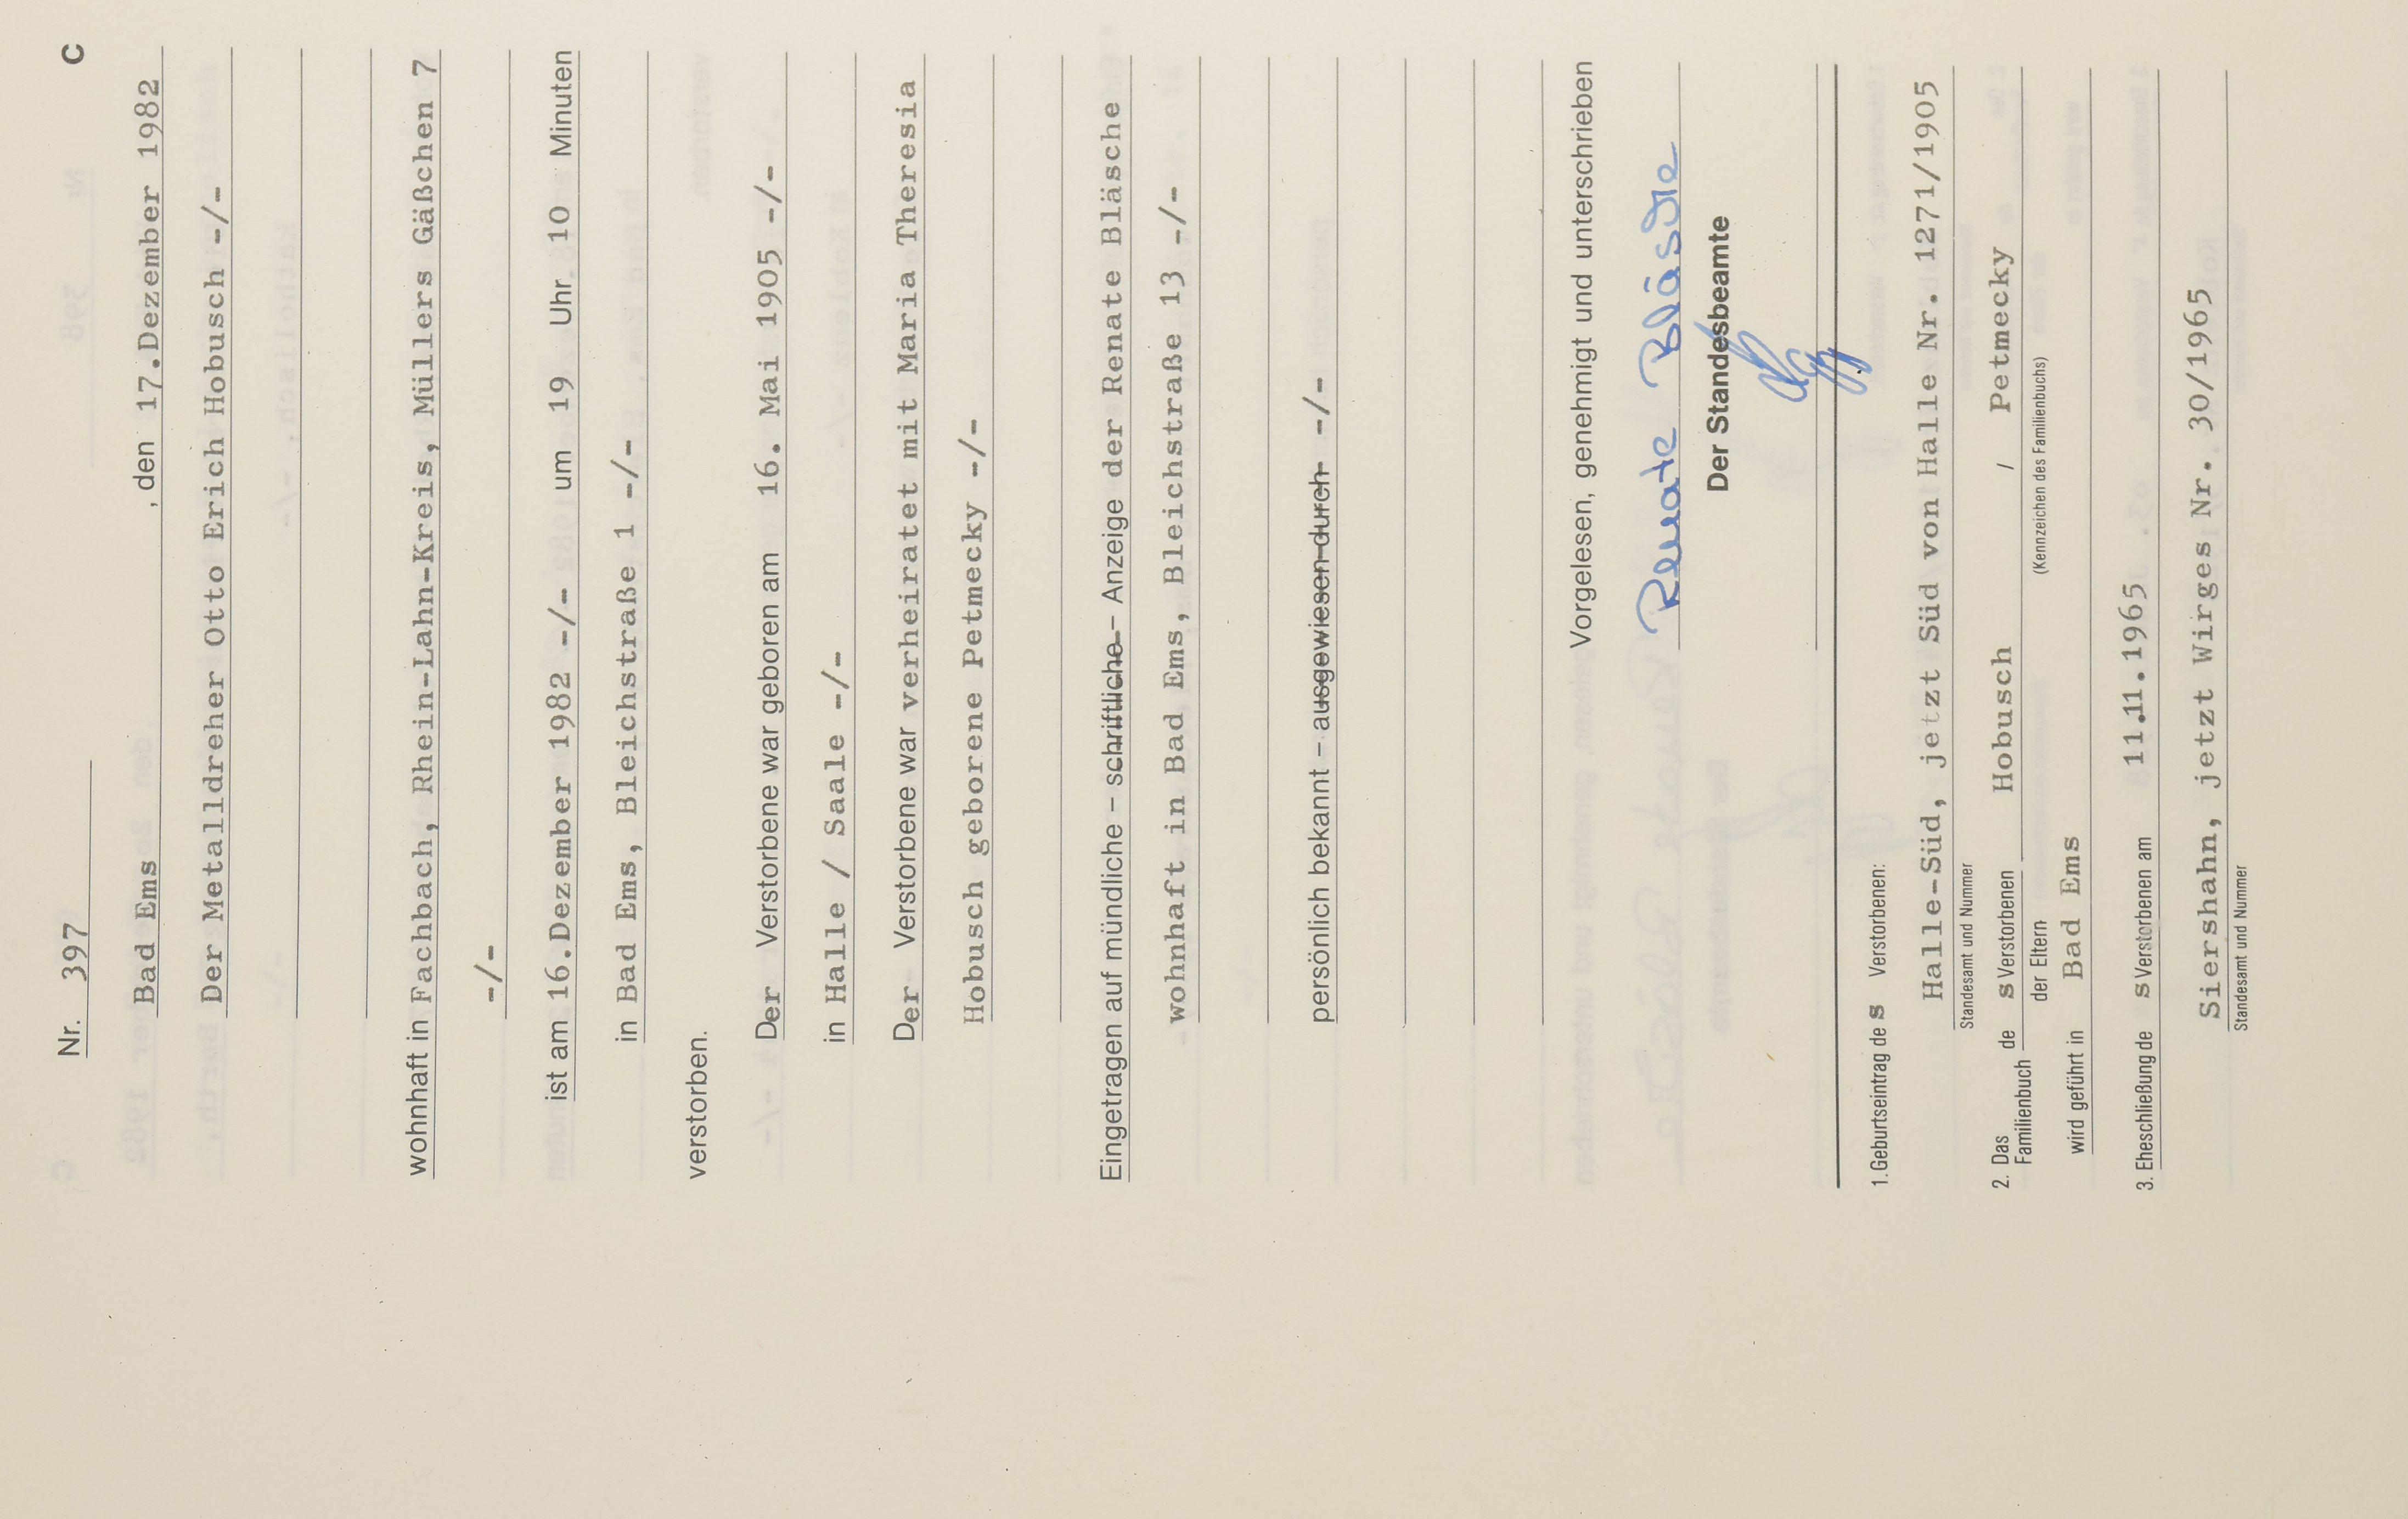 Nr. 397 C
Bad Ems , den 17.Dezember 1982
Der Metalldreher Otto Erich Hobusch -/-
wohnhaft in Fachbach, Rhein-Lahn-Kreis, Müllers Gäßchen 7
-/-
ist am 16.Dezember 1982 -/- um 19 Uhr 10 Minuten
in Bad Ems, Bleichstraße 1 -/-
verstorben.
Der Verstorbene war geboren am 16. Mai 1905 -/-
in Halle / Saale -/-
Der Verstorbene war verheiratet mit Maria Theresia
Hobusch geborene Petmecky -/-
Eingetragen auf mündliche – schriftliche – Anzeige der Renate Bläsche
wohnhaft in Bad Ems, Bleichstraße 13 -/-
persönlich bekannt – ausgewiesen durch -/-
Vorgelesen, genehmigt und unterschrieben
Renate Bläsche
Der Standesbeamte
1.Geburtseintrag des Verstorbenen:
Halle-Süd, jetzt Süd von Halle Nr. 1271/1905
Standesamt und Nummer
2. Das Familienbuch des Verstorbenen Hobusch / Petmecky
der Eltern (Kennzeichen des Familienbuchs)
wird geführt in Bad Ems
3. Eheschließung des Verstorbenen am 11.11.1965
Siershahn, jetzt Wirges Nr. 30/1965
Standesamt und Nummer